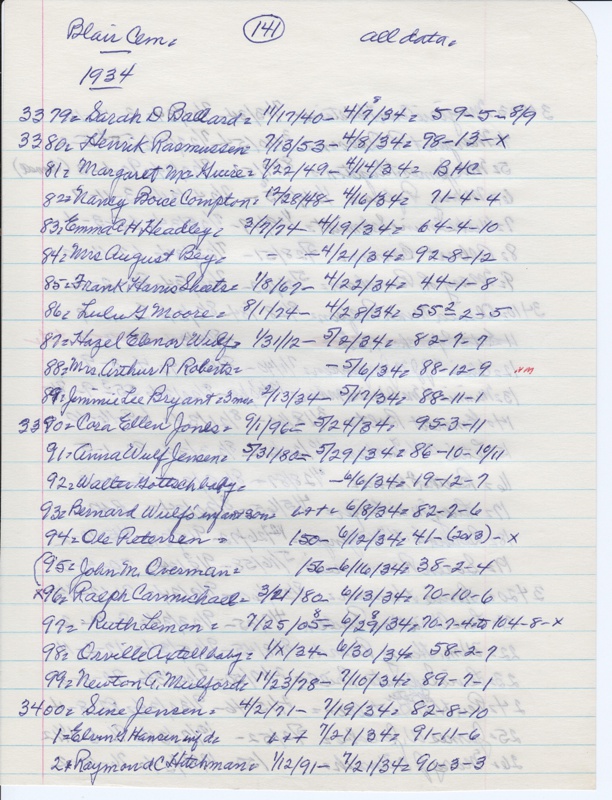 Blair Cem. (141) all data.
1934
3379= Sarah D Ballard= 11/17/40- 4/7/34= 59-5-8/9
8
3380= Henrik Rasmussen= 7/13/53- 4/8/34= 98-13-x
81= Margaret McGuire= 7/22/49- 4/14/34= BHC
82= Nancy Boice Compton= 12/28/48- 4/16/34= 71-4-4
83= Emma H Headley= 3/7/74- 4/19/34= 64-4-10
84= Mrs August Bey= - - 4/21/34= 92-8-12
85= Frank Harris Sheets= 1/8/67- 4/22/34= 44-1-8
86= Lulu G Moore= 8/1/74- 4/28/34= 55-2-5
87= Hazel Elenor Wulf= 1/31/12- 5/2/34= 82-7-7
88= Mrs. Arthur R Roberts= - 5/6/34= 88-12-9 NM
89= Jimmie Lee Bryant=3mo 2/13/34- 5/17/34= 88-11-1
3390= Cora Ellen Jones= 9/1/96- 5/24/34= 95-3-11
91= Anna Wulf Jensen= 5/31/80- 5/29/34= 86-10-10/11
92= Walter Gottsch baby= - 6/6/34= 19-12-7
93= Bernard Wulf's infant son= 6/8/34= 82-7-6
94= Ole Petersen= 1850- 6/12/34= 41-(2or3)-x
(95= John M. Overman= 1856- 6/16/34= 38-2-4
x96= Ralph Carmichael= 3/21/80- 6/13/34= 70-10-6
97= Ruth Lemon= 7/25/05- 6/29/34= 70-7-4 to 104-8-x
8 8
98= Orville Axtell baby= 1/x/34- 6/30/34= 58-2-7
99= Newton G. Mulford= 11/23/78- 7/10/34= 89-7-1
3400= Sine Jensen= 4/2/71- 7/19/34= 82-8-10
1= Elvin G Hansen inf d= 7/21/34= 91-11-6
2= Raymond C Hitchman= 7/12/91- 7/21/34= 90-3-3